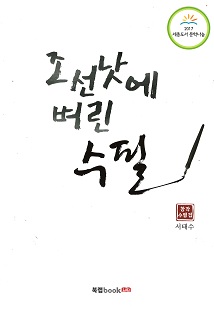 2017
세종도서 문학나눔
조선낫에
벼린
수필
서태수
북랩book